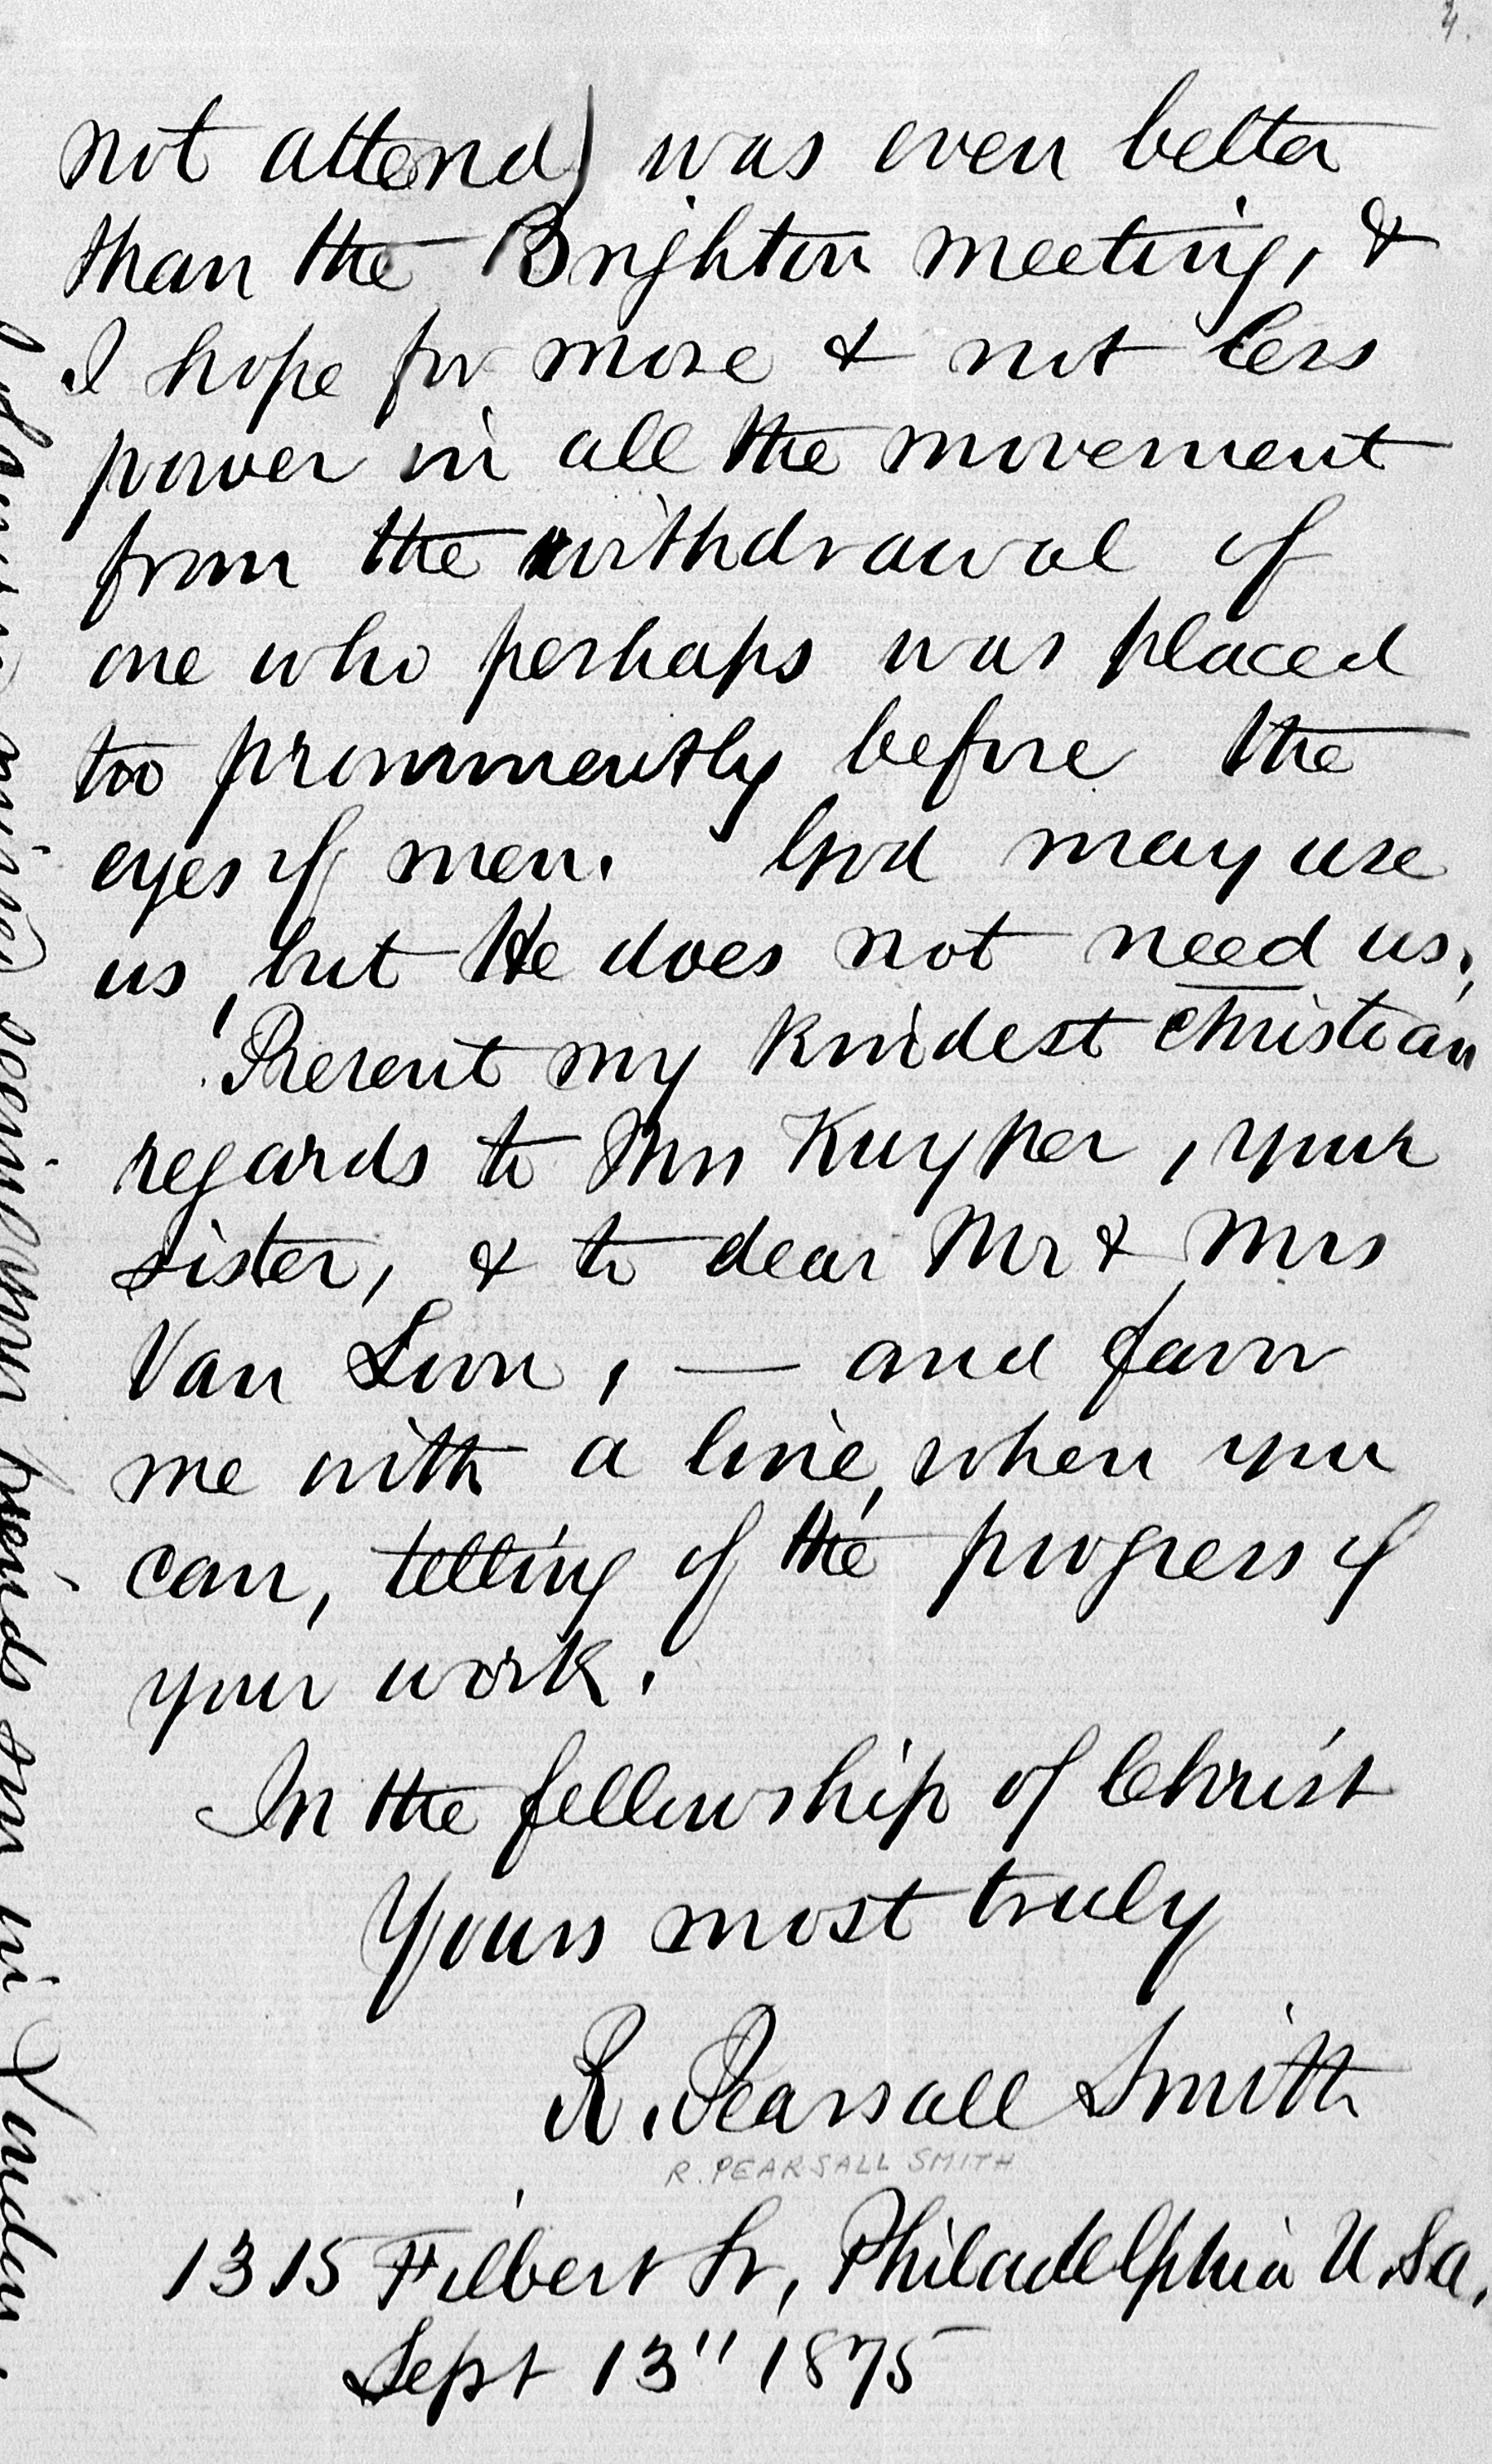 4.
not attend) was even better
than the Brighton meeting, &
I hope for more & not less
power in all the movement
from the withdrawal of
one who perhaps was placed
too prominently before the
eyes of men. God may use
us, but He does not need us,
Present my kindest christian
regards to Mrs Kuyper, your
sister, & to dear Mr & Mrs
Van Loon, — and favor
me with a line, when you
can, telling of the progress of
your work.
In the fellowship of Christ
Yours most truly
R. Pearsall Smith
R. PEARSALL SMITH
1315 Filbert St, Philadelphia U.Sa.
Sept 13" 1875
friends in London